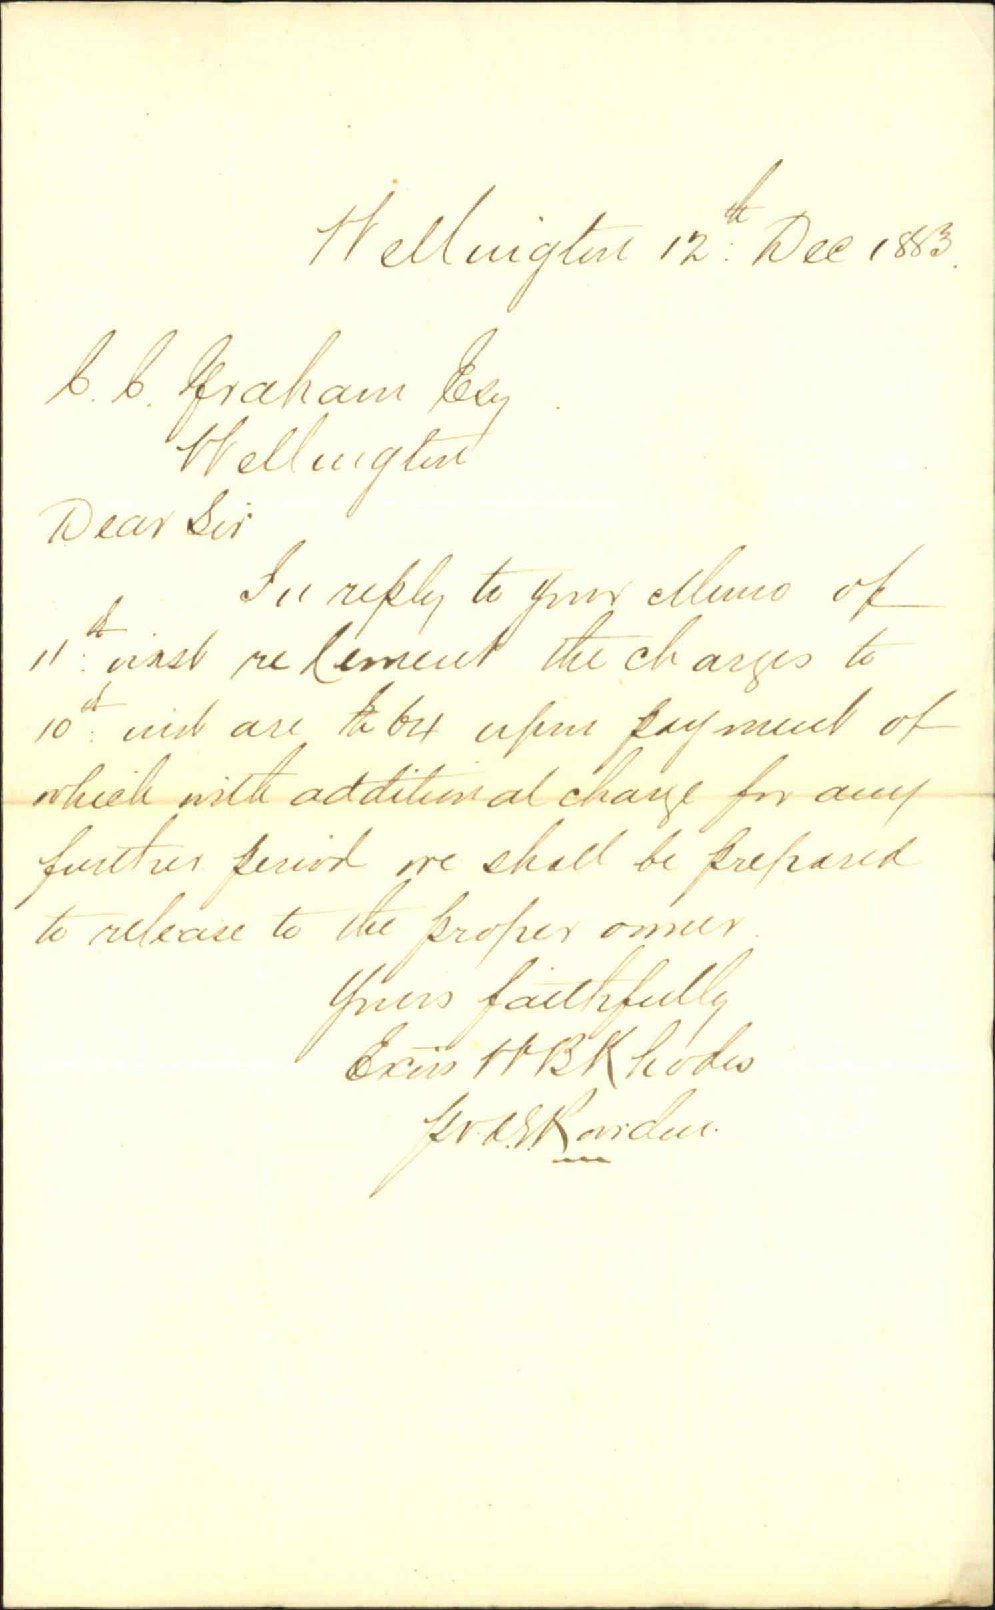 Wellington 12th Dec 1883.
C. C. Graham Esq
Wellington
Dear Sir
In reply to your Memo of
11th inst re Cement the charges to
10th inst are £64 upon payment of
which with additional charge for any
further period we shall be prepared
to release to the proper owner.
Yours faithfully
Exōrs W B Rhodes